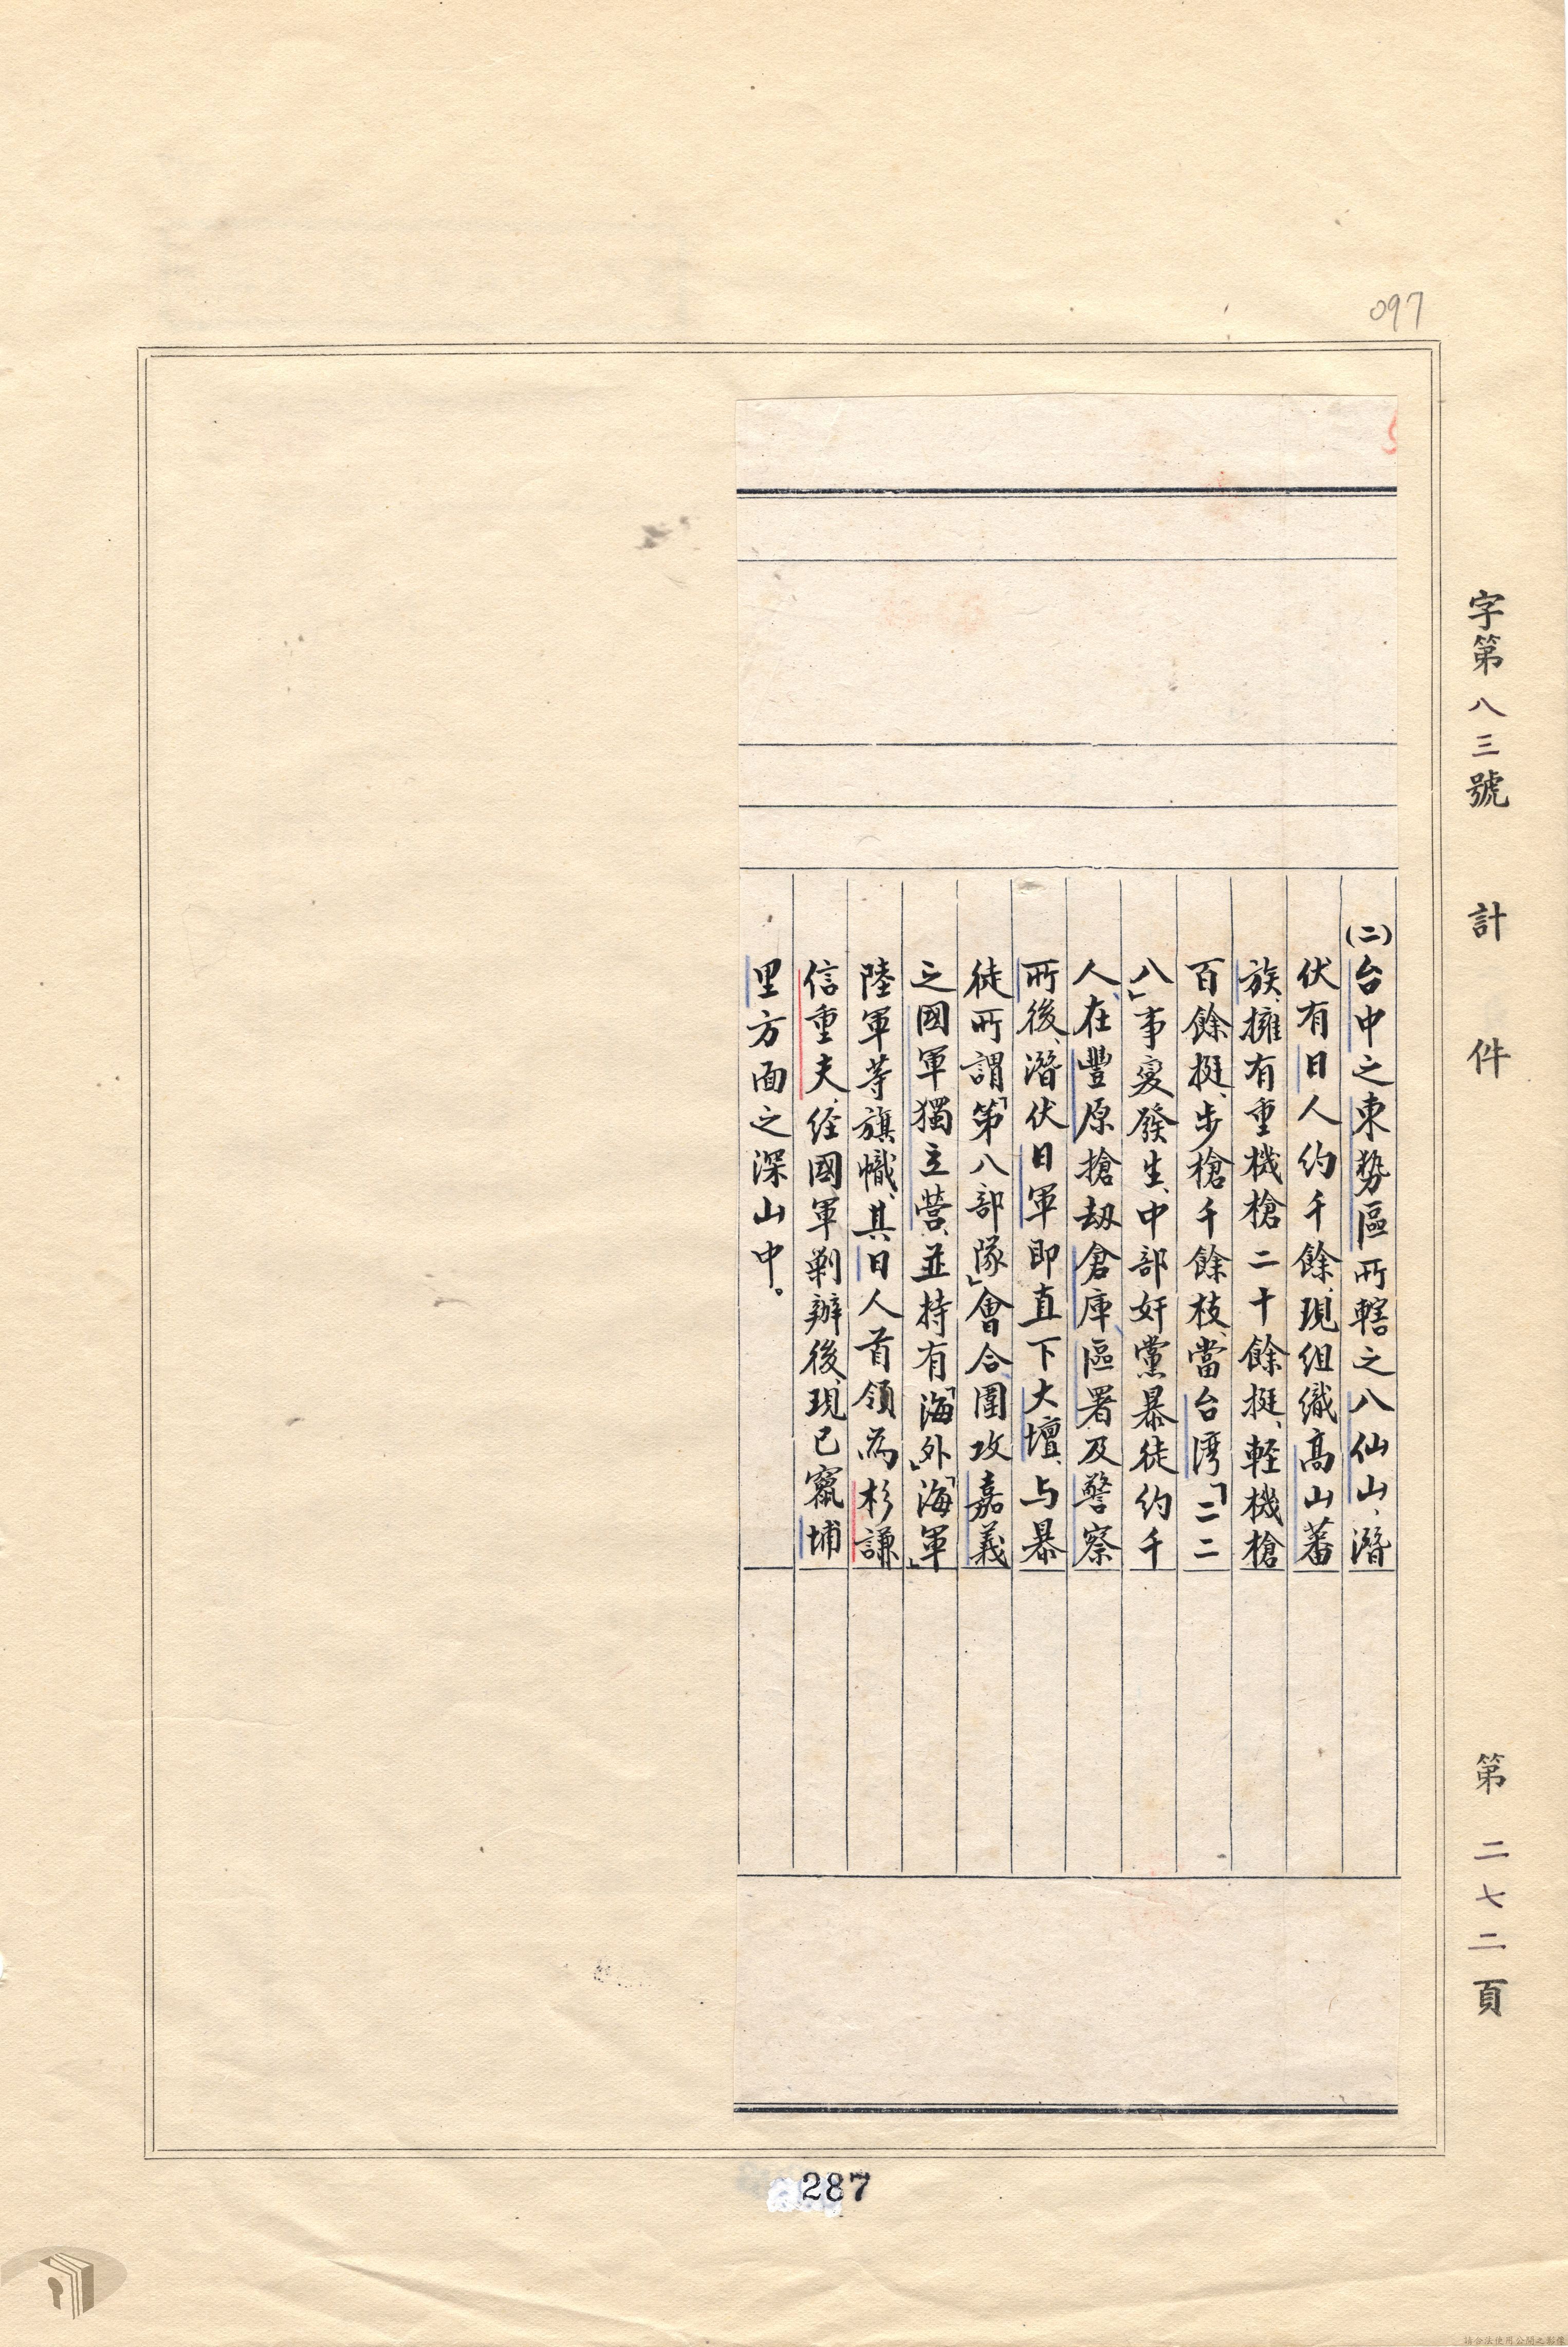 097
字第八三號 計 件 第二七二頁
(二)台中之東勢區所轄之八仙山、潛
伏有日人約千餘、現組織高山蕃
族、擁有重機槍二十餘挺、輕機槍
百餘挺、步槍千餘枝、當台湾「二二
八」事変發生、中部奸黨暴徒約千
人、在豐原搶劫倉庫、區署及警察
所後、潛伏日軍即直下大壇、与暴
徒所謂「第八部隊」會合、圍攻嘉義
之國軍獨立营、並持有「海外」「海軍」
陸軍等旗幟、其日人首領為杉謙
信重夫、経國軍剿辦後、現已竄埔
里方面之深山中。
287
請合法使用公開之影像